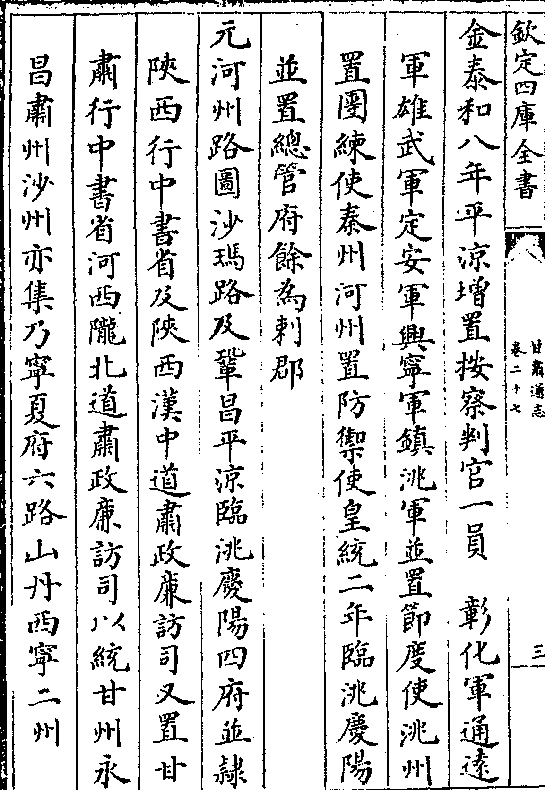 欽定四庫全書
甘肅通志
卷二十七
三
金泰和八年平涼增置按察判官一員 彰化軍通遠
軍雄武軍定安軍興寧軍鎮洮軍並置節度使洮州
置團練使秦州河州置防禦使皇統二年臨洮慶陽
並置總管府餘為刺郡
元河州路圖沙瑪路及鞏昌平涼臨洮慶陽四府並隸
陜西行中書省及陜西漢中道肅政廉訪司又置甘
肅行中書省河西隴北道肅政廉訪司以統甘州永
昌肅州沙州亦集乃寧夏府六路山丹西寧二州